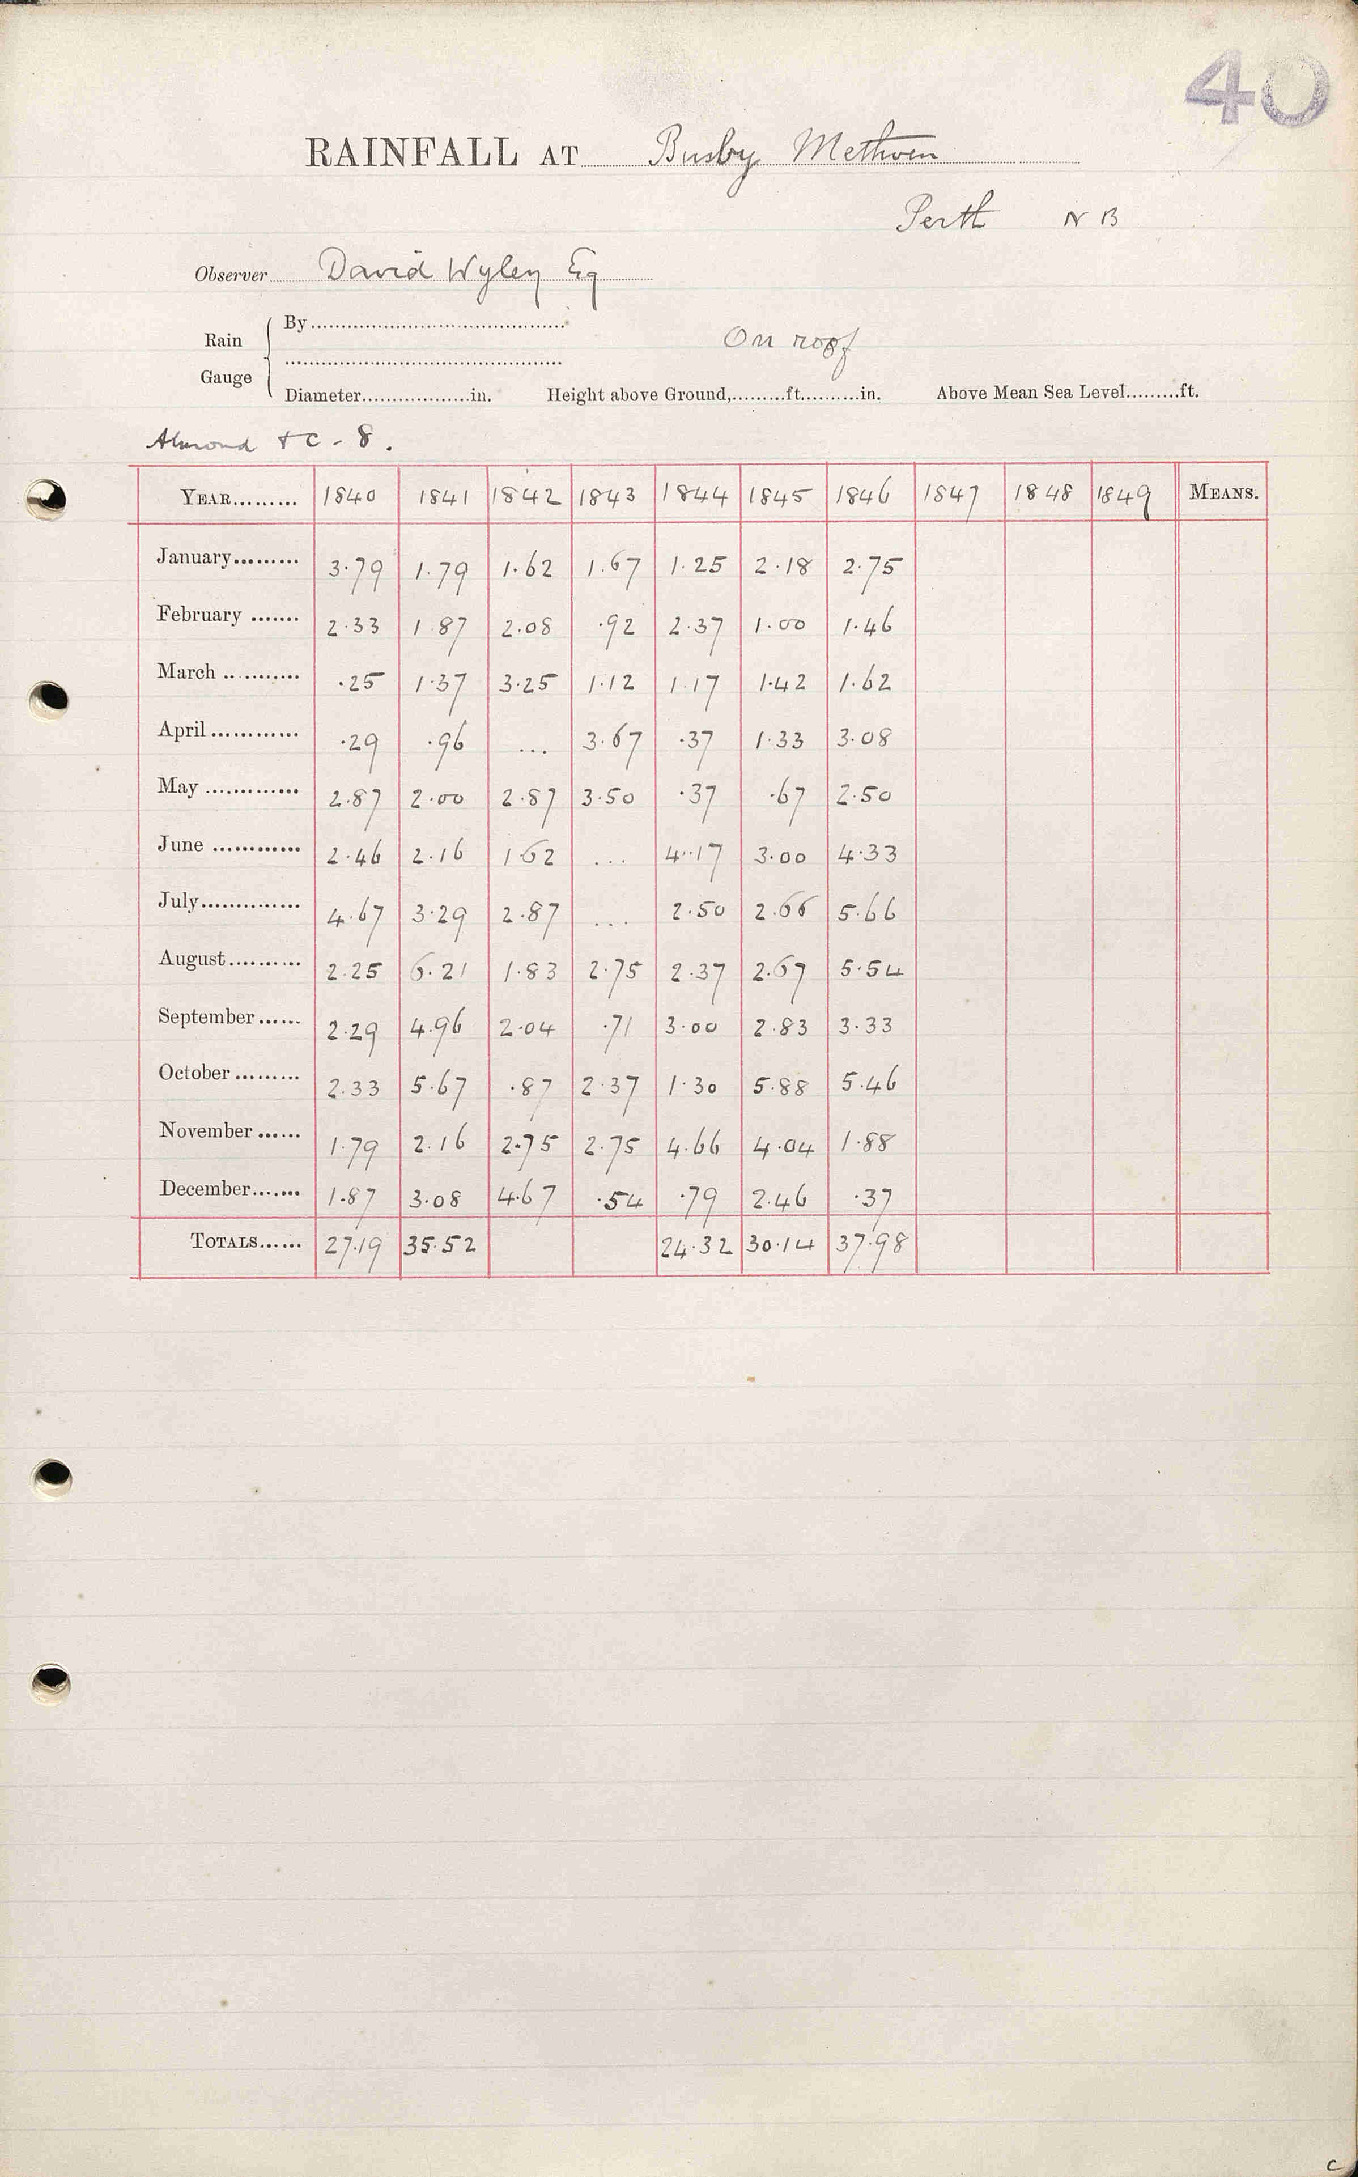 40
RAINFALL AT Busby Methven
Perth N B
Observer David Wyley Esq
Rain Gauge { By
On roof
Diameter in. Height above Ground, ft. in. Above Mean Sea Level ft.
Almond & C - 8.
YEAR 1840 1841 1842 1843 1844 1845 1846 1847 1848 1849 MEANS.
January 3.79 1.79 1.62 1.67 1.25 2.18 2.75
February 2.33 1.87 2.08 .92 2.37 1.00 1.46
March .25 1.37 3.25 1.12 1.17 1.42 1.62
April .29 .96 ... 3.67 .37 1.33 3.08
May 2.87 2.00 2.87 3.50 .37 .67 2.50
June 2.46 2.16 1.62 ... 4.17 3.00 4.33
July 4.67 3.29 2.87 ... 2.50 2.66 5.66
August 2.25 6.21 1.83 2.75 2.37 2.67 5.54
September 2.29 4.96 2.04 .71 3.00 2.83 3.33
October 2.33 5.67 .87 2.37 1.30 5.88 5.46
November 1.79 2.16 2.75 2.75 4.66 4.04 1.88
December 1.87 3.08 4.67 .54 .79 2.46 .37
TOTALS 27.19 35.52 24.32 30.14 37.98
c